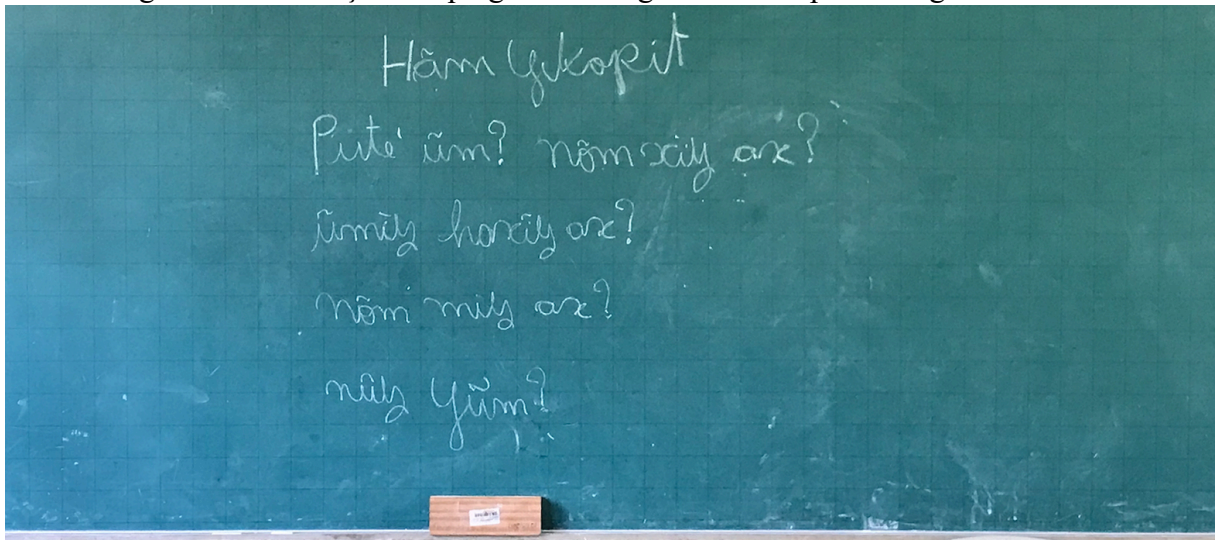 Hãm Yikopit
Putẽ' ũm? nõm xiy ax?
ũmiy hoxiy ax?
nõm miy ax?
nũy Yũm?